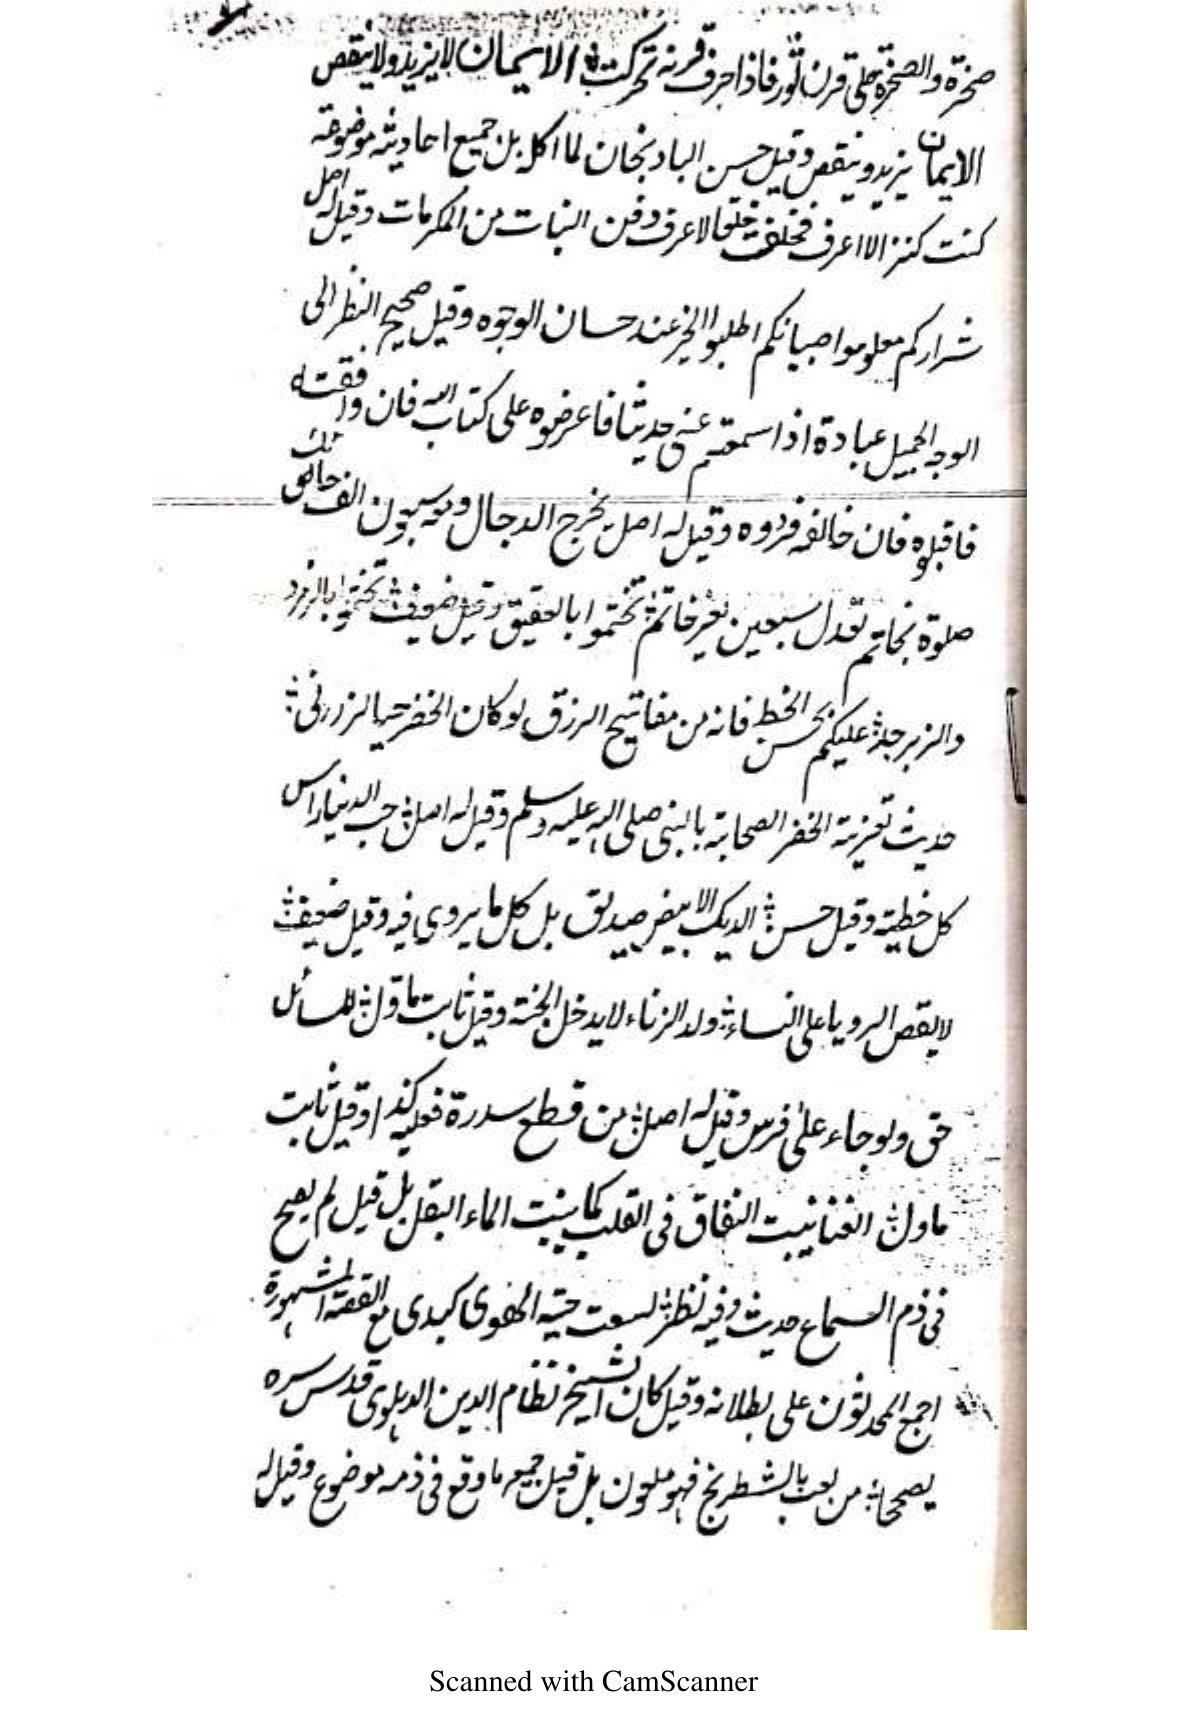 صخرة والصخرة على قرن ثور فاذا حرف قرنه تحركت الايمان لا يزيد ولا ينقص
الايمان يزيد وينقص وقيل حسن الباذنجان لما اكل بل جميع احاديثه موضوعة
كنت كنزا لا اعرف فخلقت خلقا لاعرف دفن البنات من المكرمات وقيل له اصل
شراركم معلموا صبيانكم اطلبوا الخير عند حسان الوجوه وقيل صحيح النظر الى
الوجه الجميل عبادة اذا سمعتم عنى حديثا فاعرضوه على كتاب الله فان وافقته
فاقبلوه فان خالفه فردوه وقيل له اصل يخرج الدجال ومعه سبعون الف حائك
صلوة بخاتم تعدل سبعين بغير خاتم تختموا بالعقيق وقيل ضعيف تختموا بالزمرد
والزبرجد عليكم بحسن الخط فانه من مفاتيح الرزق لو كان الخضر حيا لزارنى
حديث تعزية الخضر الصحابة بالنبى صلى الله عليه وسلم وقيل له اصل حب الدنيا راس
كل خطيئة وقيل حسن الديك الابيض صديق بل كل ما يروى فيه وقيل ضعيف
لا يقص الرويا على النساء ولد الزناء لا يدخل الجنة وقيل ثابت ماول للسائل
حق ولو جاء على فرس وقيل له اصل من قطع سدرة فعليه كذا وقيل ثابت
ماول الغنا ينبت النفاق فى القلب كما ينبت الماء البقل بل قيل لم يصح
فى ذم السماع حديث وفيه نظر لسعت حية الهوى كبدى مع القصة المشهورة
اجمع المحدثون على بطلانه وقيل كان الشيخ نظام الدين الدهلوى قدس سره
يصححها من لعب بالشطرنج فهو ملعون بل قيل جميع ما وقع فى ذمه موضوع وقيل له
Scanned with CamScanner